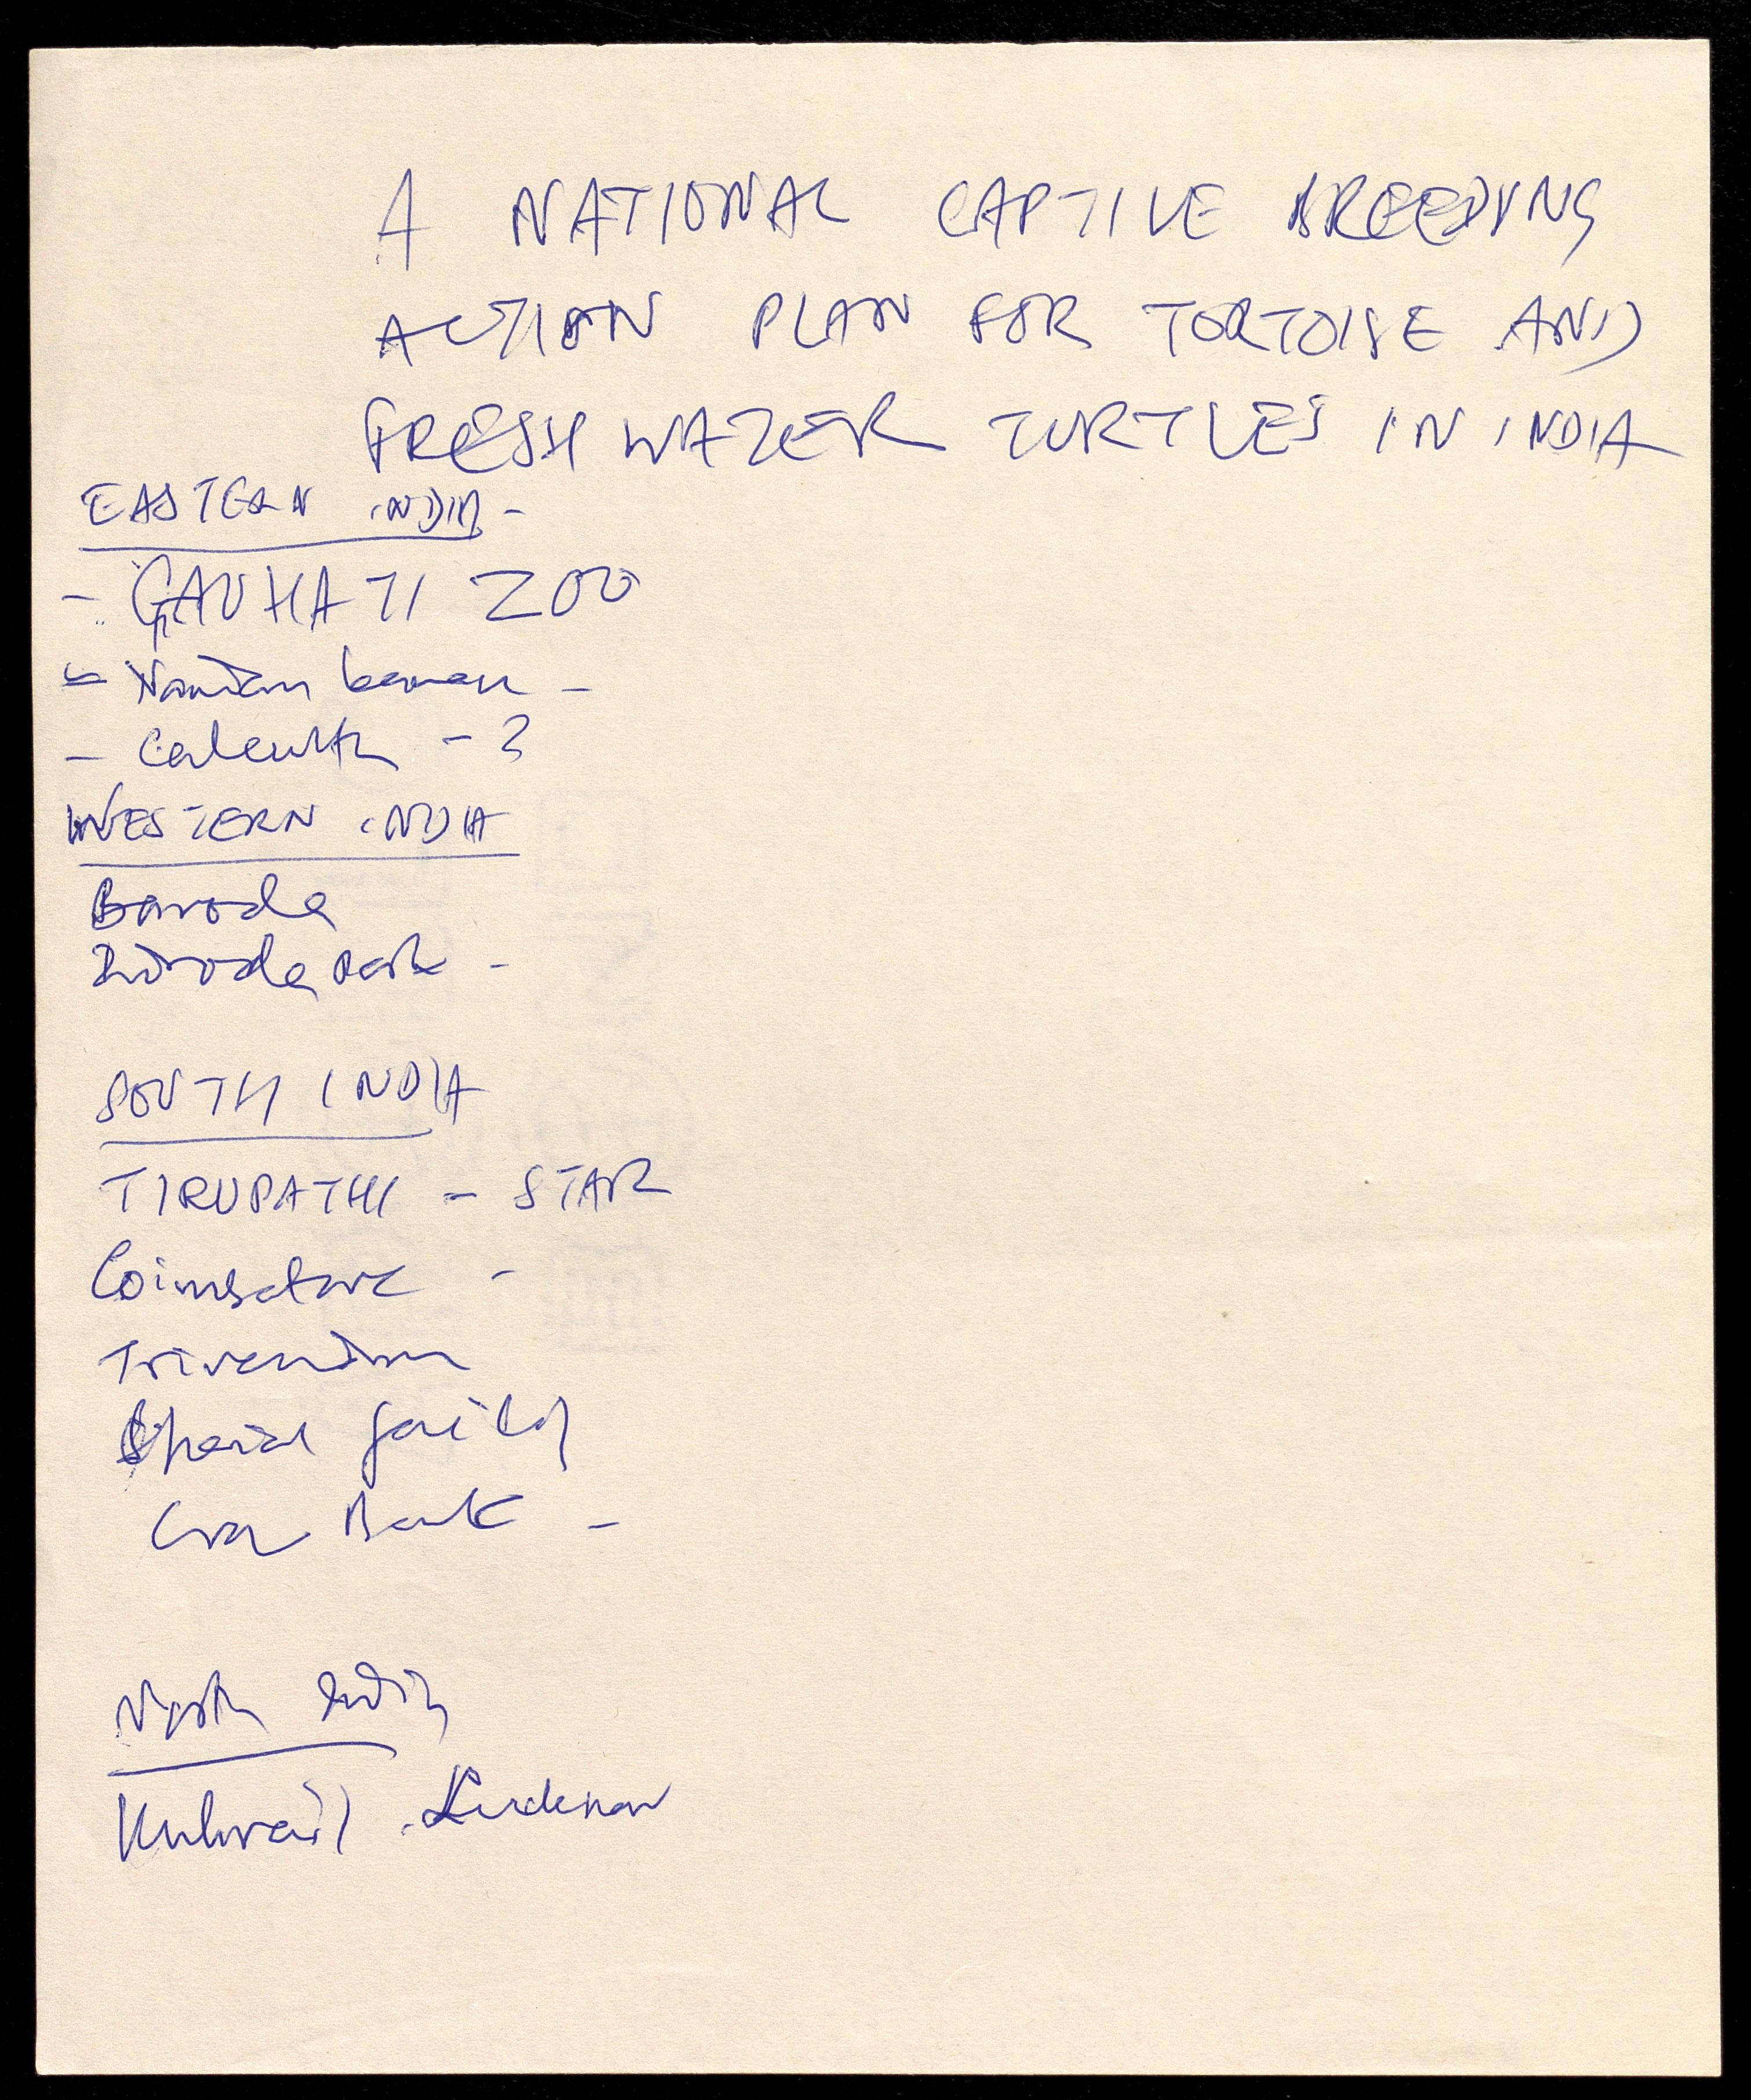 A NATIONAL CAPTIVE BREEDING
ACTION PLAN FOR TORTOISE AND
FRESH WATER TURTLES IN INDIA
EASTERN INDIA -
- GAUHATI ZOO
- Nandan kanan -
- Calcutta - ?
WESTERN INDIA
Baroda
park -
SOUTH INDIA
TIRUPATHI - STAR
Coimbatore -
Trivandrum
Special facility
Croc Bank -
North India
Kukrail . Lucknow